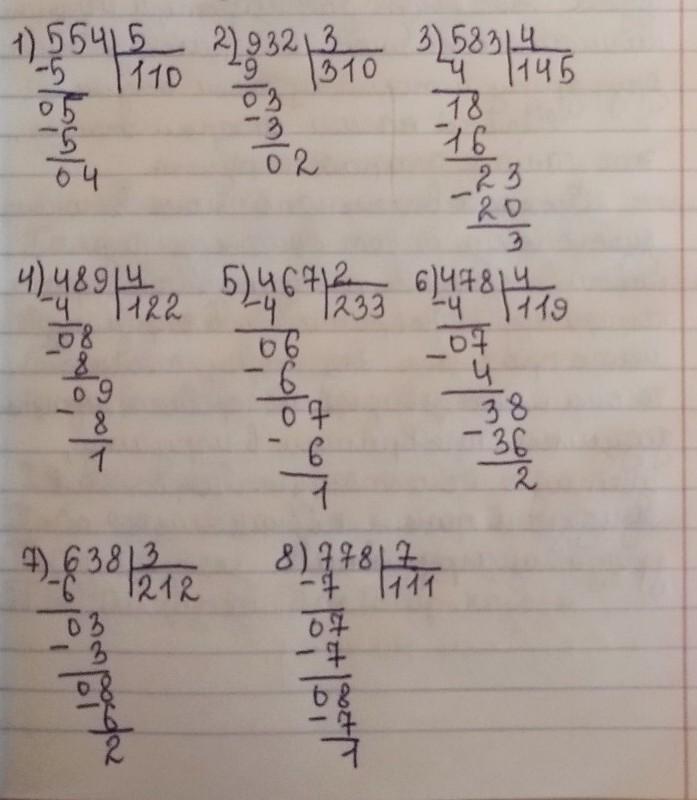 1) 554 | 5   2) 932 | 3   3) 583 | 4
-5 | 110   9 | 310   4 | 145
05   03   18
-5   -3   -16
04   02   23
-20
3
4) 489 | 4   5) 467 | 2   6) 478 | 4
-4 | 122   -4 | 233   -4 | 119
08   06   07
-8   -6   -4
09   07   38
-8   -6   -36
1   1   2
7) 638 | 3   8) 778 | 7
-6 | 212   -7 | 111
03   07
-3   -7
08   08
-6   -7
2   1